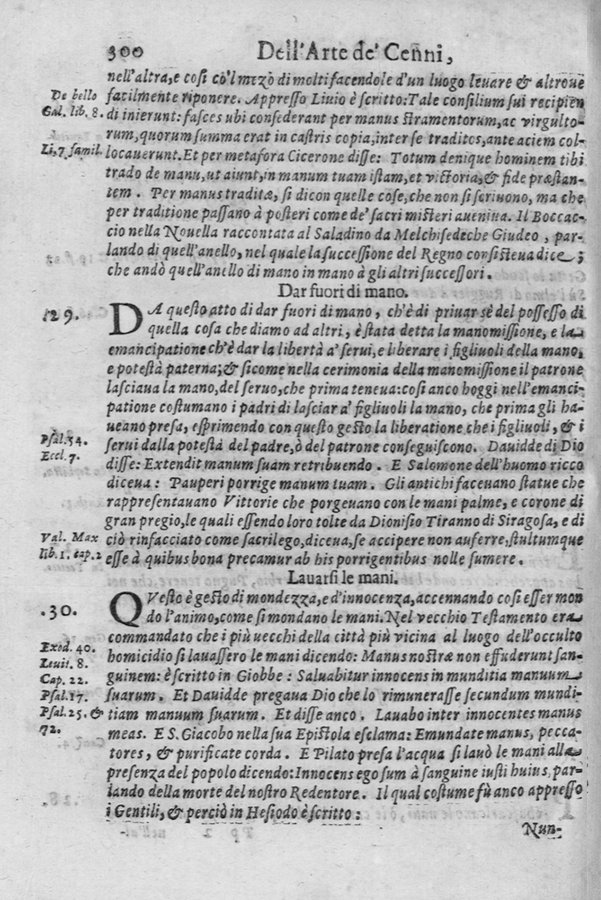 300 Dell'Arte de' Cenni,
nell'altra, e così cò'l mezò di molti facendole d'un luogo leuare & altroue
De bello facilmente riponere. Appresso Liuio è scritto: Tale consilium sui recipien
Gal. lib. 8. di inierunt: fasces ubi consederant per manus stramentorum, ac virgulto-
rum, quorum summa erat in castris copia, inter se traditos, ante aciem col-
Li, 7 famil. locauerunt. Et per metafora Cicerone disse: Totum denique hominem tibi
trado de manu, ut aiunt, in manum tuam istam, et victoria, & fide præstan-
tem. Per manus traditæ, si dicon quelle cose, che non si scriuono, ma che
per traditione passano à posteri come de' sacri misteri aueniua. Il Boccac-
cio nella Nouella raccontata al Saladino da Melchisedeche Giudeo, par-
lando di quell'anello, nel quale la successione del Regno consisteua dice;
che andò quell'anello di mano in mano à gli altri successori.
Dar fuori di mano.
129. DA questo atto di dar fuori di mano, ch'è di priuar sè del possesso di
quella cosa che diamo ad altri, è stata detta la manomissione, e la
emancipatione ch'è dar la libertà a' serui, e liberare i figliuoli della mano,
e potestà paterna; & sicome nella cerimonia della manomissione il patrone
lasciaua la mano, del seruo, che prima teneua: così anco hoggi nell'emanci-
patione costumano i padri di lasciar a' figliuoli la mano, che prima gli ha-
ueano presa, esprimendo con questo gesto la liberatione che i figliuoli, & i
Psal. 34. serui dalla potestà del padre, ò del patrone conseguiscono. Dauidde di Dio
Eccl. 7. disse: Extendit manum suam retribuendo. E Salomone dell'huomo ricco
diceua: Pauperi porrige manum tuam. Gli antichi faceuano statue che
rappresentauano Vittorie che porgeuano con le mani palme, e corone di
gran pregio, le quali essendo loro tolte da Dionisio Tiranno di Siragosa, e di
Val. Max ciò rinfacciato come sacrilego, diceua, se accipere non auferre, stultumque
lib. 1. cap. 2 esse à quibus bona precamur ab his porrigentibus nolle sumere.
Lauarsi le mani.
.30. QVesto è gesto di mondezza, e d'innocenza, accennando così esser mon
do l'animo, come si mondano le mani. Nel vecchio Testamento era
commandato che i più uecchi della città più vicina al luogo dell'occulto
Exod. 40. homicidio si lauassero le mani dicendo: Manus nostræ non effuderunt san-
Leuit. 8. guinem: è scritto in Giobbe: Saluabitur innocens in munditia manuum
Cap. 22. suarum. Et Dauidde pregaua Dio che lo rimunerasse secundum mundi-
Psal. 17. tiam manuum suarum. Et disse anco. Lauabo inter innocentes manus
Psal. 25. & meas. E S. Giacobo nella sua Epistola esclama: Emundate manus, pecca-
72. tores, & purificate corda. E Pilato presa l'acqua si lauò le mani alla
presenza del popolo dicendo: Innocens ego sum à sanguine iusti huius, par-
lando della morte del nostro Redentore. Il qual costume fù anco appresso
i Gentili, & perciò in Hesiodo è scritto:
Nun-